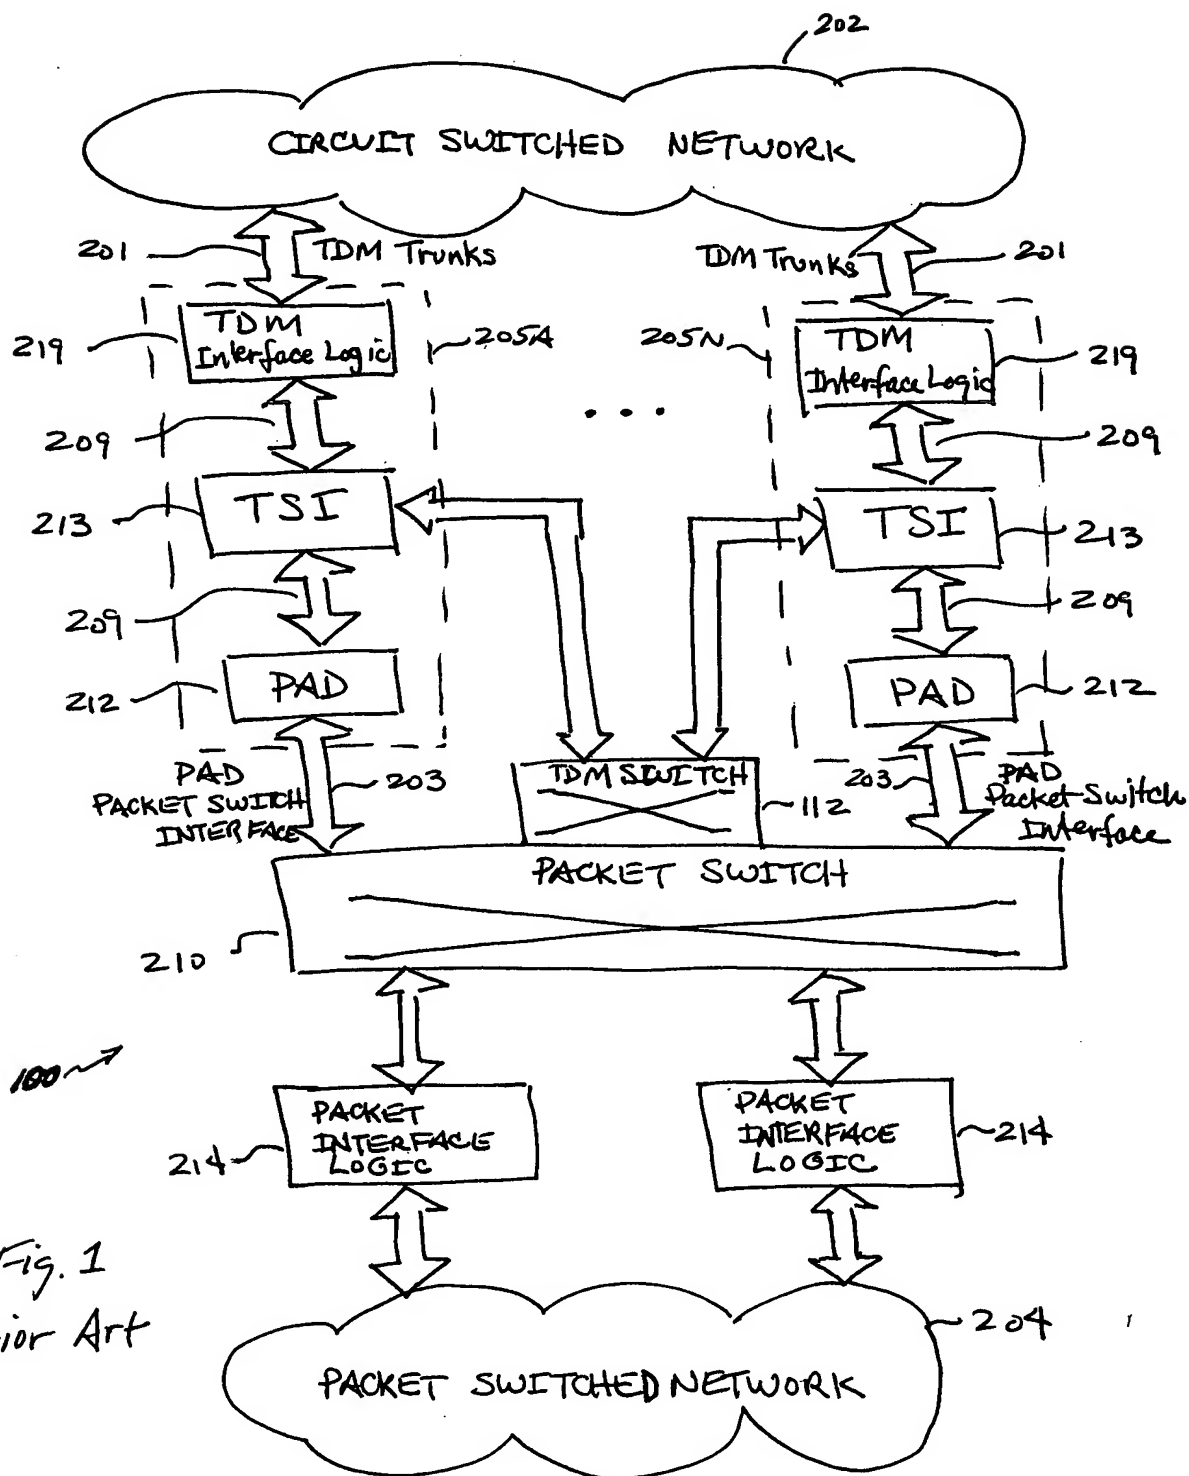 202
CIRCUIT SWITCHED NETWORK
201
TDM Trunks
TDM Trunks
201
219
TDM
Interface Logic
205A
205N
TDM
Interface Logic
219
209
...
209
213
TSI
TSI
213
209
209
212
PAD
PAD
212
PAD
PACKET SWITCH
INTERFACE
203
TDM SWITCH
112
203
PAD
Packet-Switch
Interface
PACKET SWITCH
210
100
PACKET
INTERFACE
LOGIC
214
PACKET
INTERFACE
LOGIC
214
Fig. 1
ior Art
204
PACKET SWITCHED NETWORK